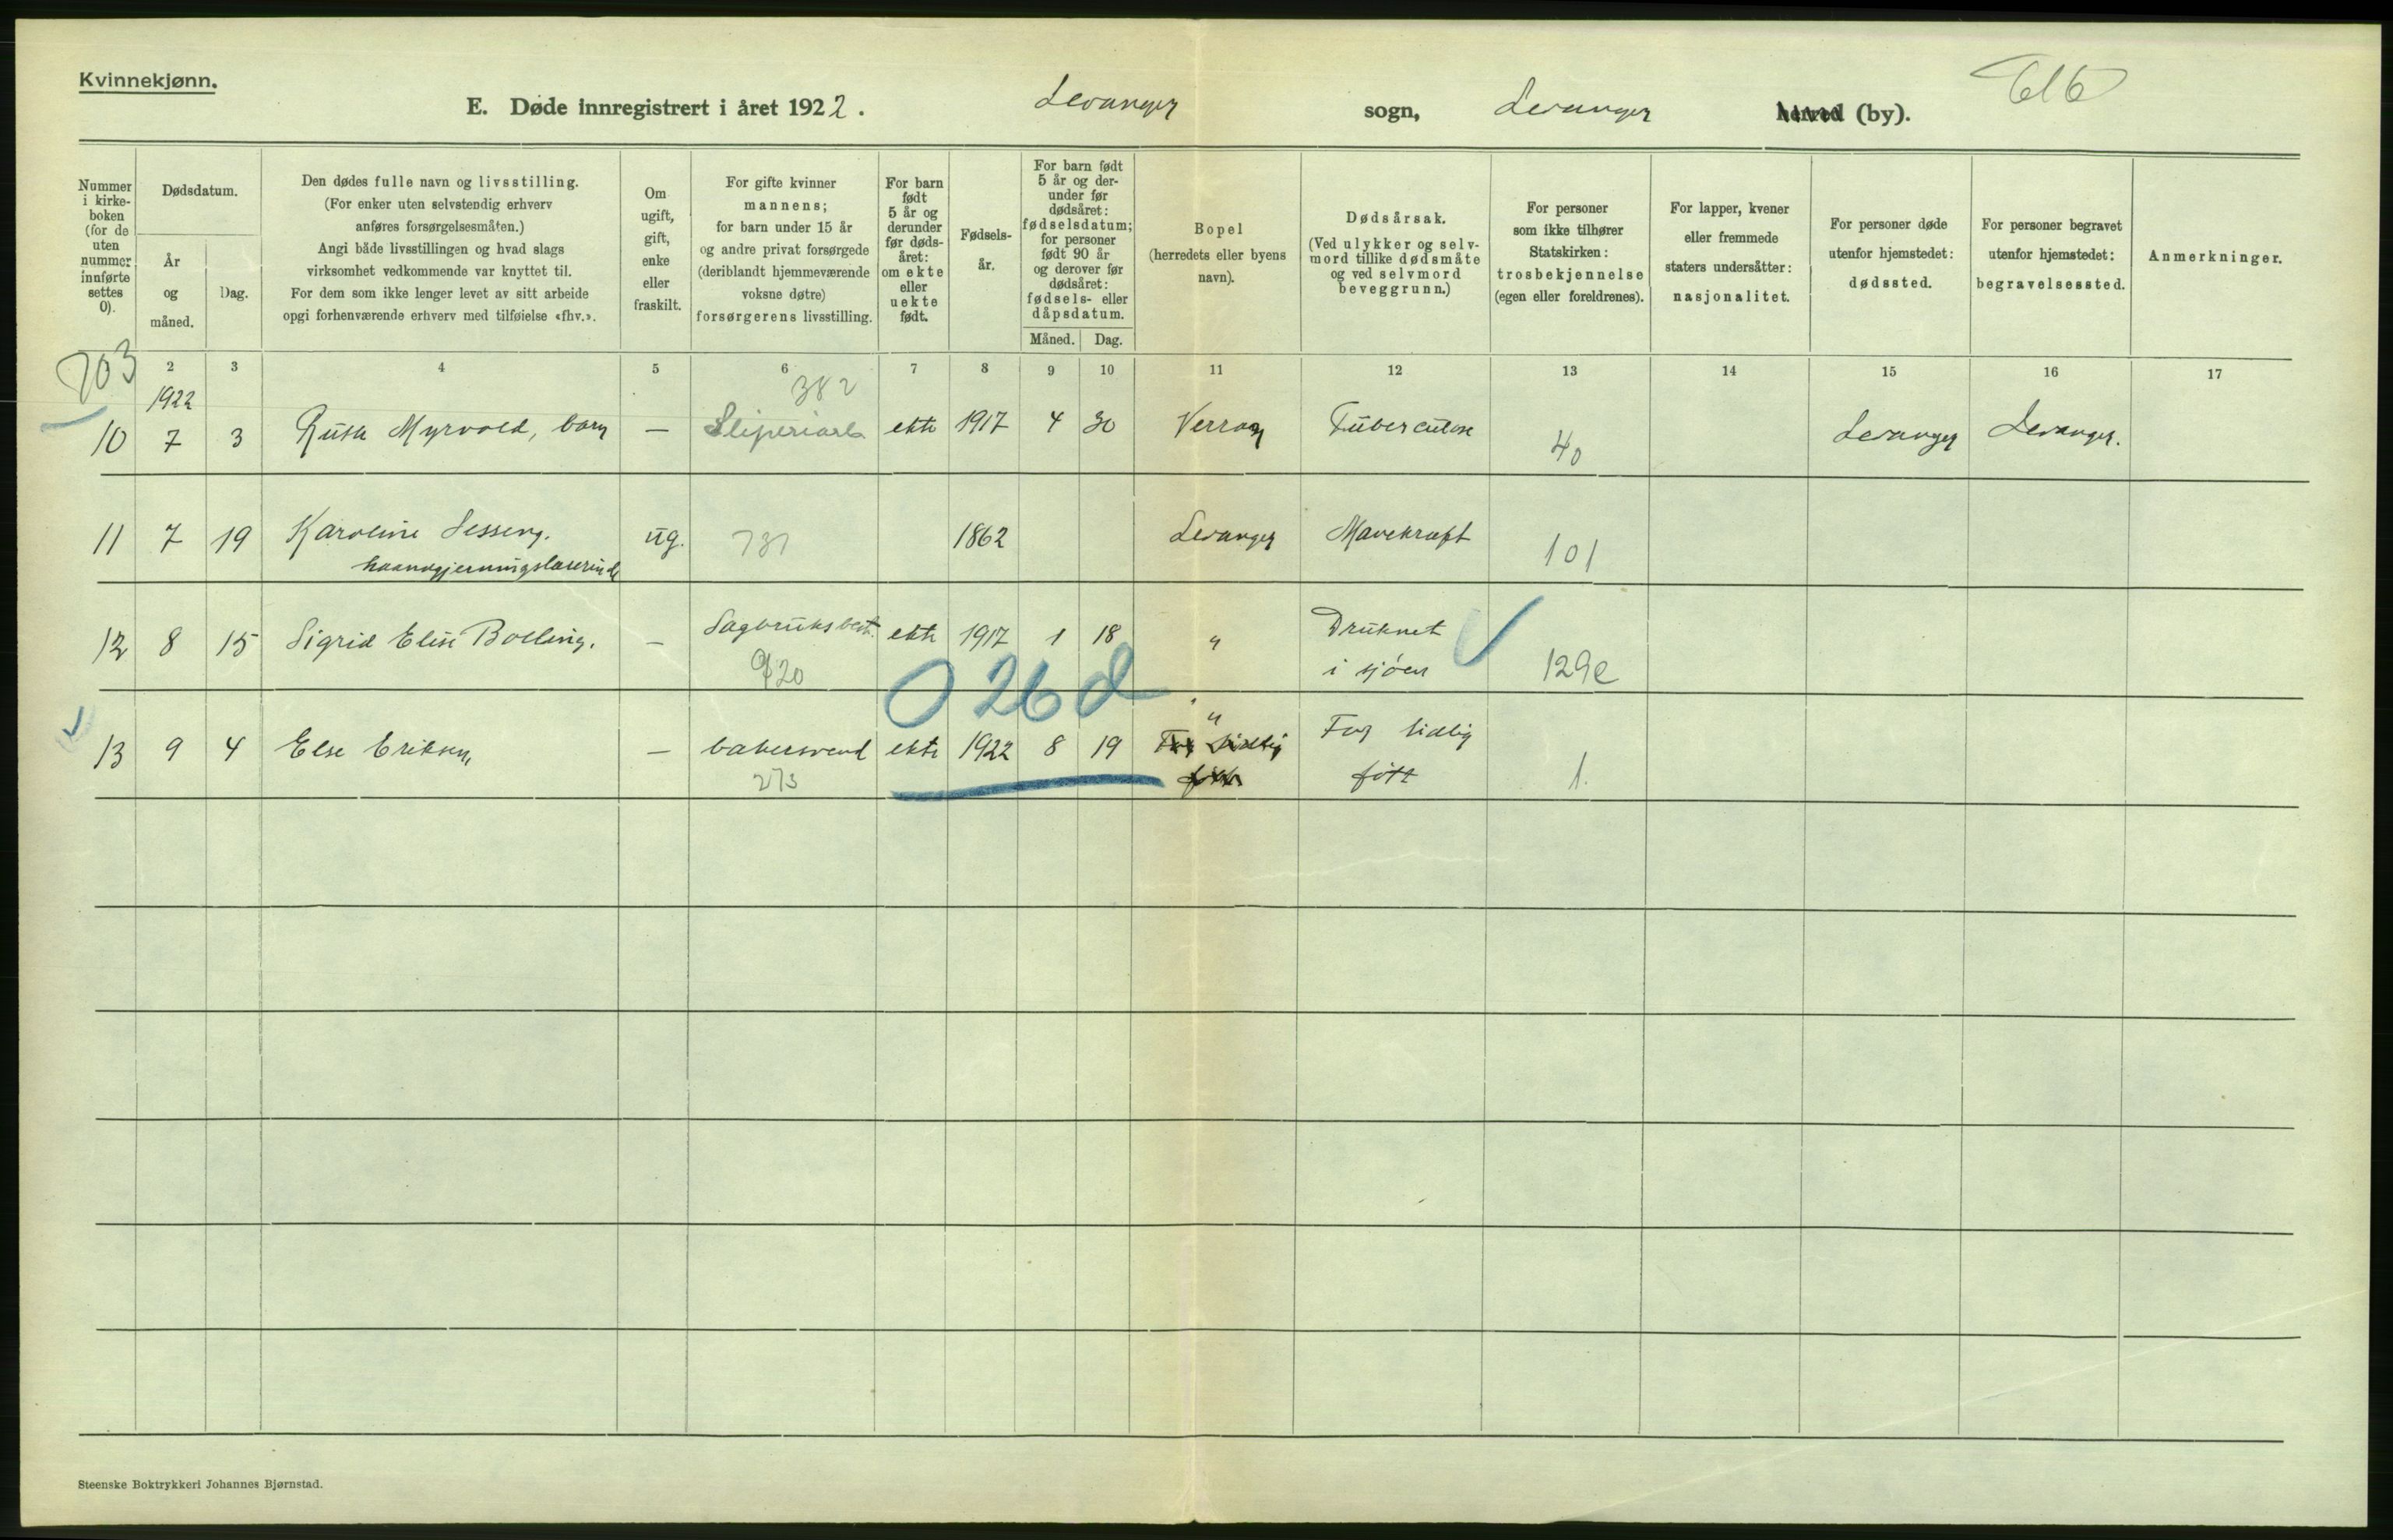 Kvinnekjønn.
E. Døde innregistrert i året 1922. Levanger sogn, Levanger herred (by).
Nummer i kirke-boken (for de uten nummer innførte settes 0).
Dødsdatum.
År og måned.
Dag.
Den dødes fulle navn og livsstilling.
(For enker uten selvstendig erhverv
anføres forsørgelsesmåten.)
Angi både livsstillingen og hvad slags
virksomhet vedkommende var knyttet til.
For dem som ikke lenger levet av sitt arbeide
opgi forhenværende erhverv med tilføielse «fhv.».
Om
ugift,
gift,
enke
eller
fraskilt.
For gifte kvinner
mannens;
for barn under 15 år
og andre privat forsørgede
(deriblandt hjemmeværende
voksne døtre)
forsørgerens livsstilling.
For barn
født
5 år og
derunder
før døds-
året:
om ekte
eller
uekte
født.
Fødsels-
år.
For barn født
5 år og der-
under før
dødsåret:
fødselsdatum;
for personer
født 90 år
og derover før
dødsåret:
fødsels- eller
dåpsdatum.
Måned. Dag.
Bopel
(herredets eller byens
navn).
Dødsårsak.
(Ved ulykker og selv-
mord tillike dødsmåte
og ved selvmord
beveggrunn.)
For personer
som ikke tilhører
Statskirken:
trosbekjennelse
(egen eller foreldrenes).
For lapper, kvener
eller fremmede
staters undersåtter:
nasjonalitet.
For personer døde
utenfor hjemstedet:
dødssted.
For personer begravet
utenfor hjemstedet:
begravelsessted.
Anmerkninger.
703 2 3 4 5 6 7 8 9 10 11 12 13 14 15 16 17
1922 382
10 7 3 Ruth Myrvold, barn — Sliperiarb ekte 1917 4 30 Verran Tuberculose 40 Levanger Levanger.
11 7 19 Karoline Lessing. ug. 731 1862 Levanger Mavekræft 101
haandgjerningslærerinde
12 8 15 Sigrid Elise Bolling. — Sagbruksbest. ekte 1917 1 18 " Druknet
920 i sjöen 129e
026d
13 9 4 Else Eriksen — bakersvend ekte 1922 8 19 " For tidlig
273 født 1.
Steenske Boktrykkeri Johannes Bjørnstad.